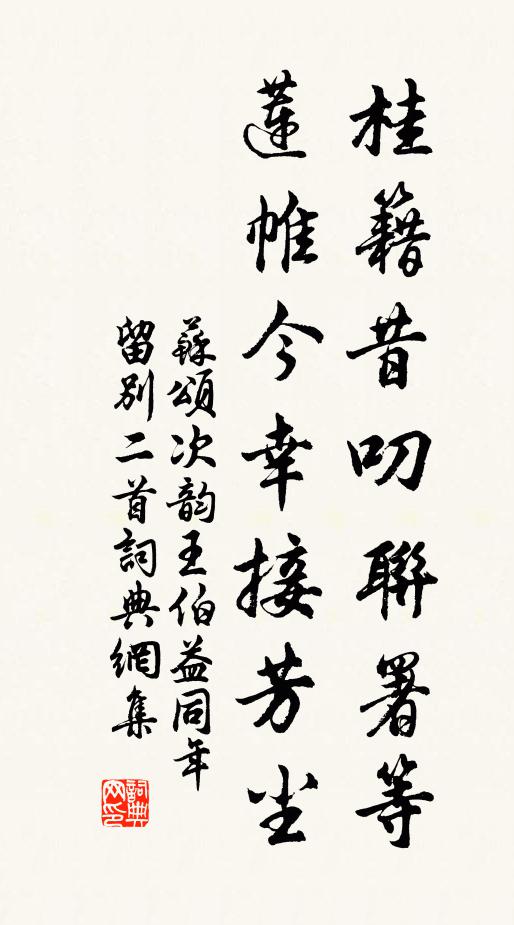 桂籍昔叨聯署等
蓮帷今幸接芳尘
蘇頌次韵王伯益同年
留別二首詞典網集
詞典网印